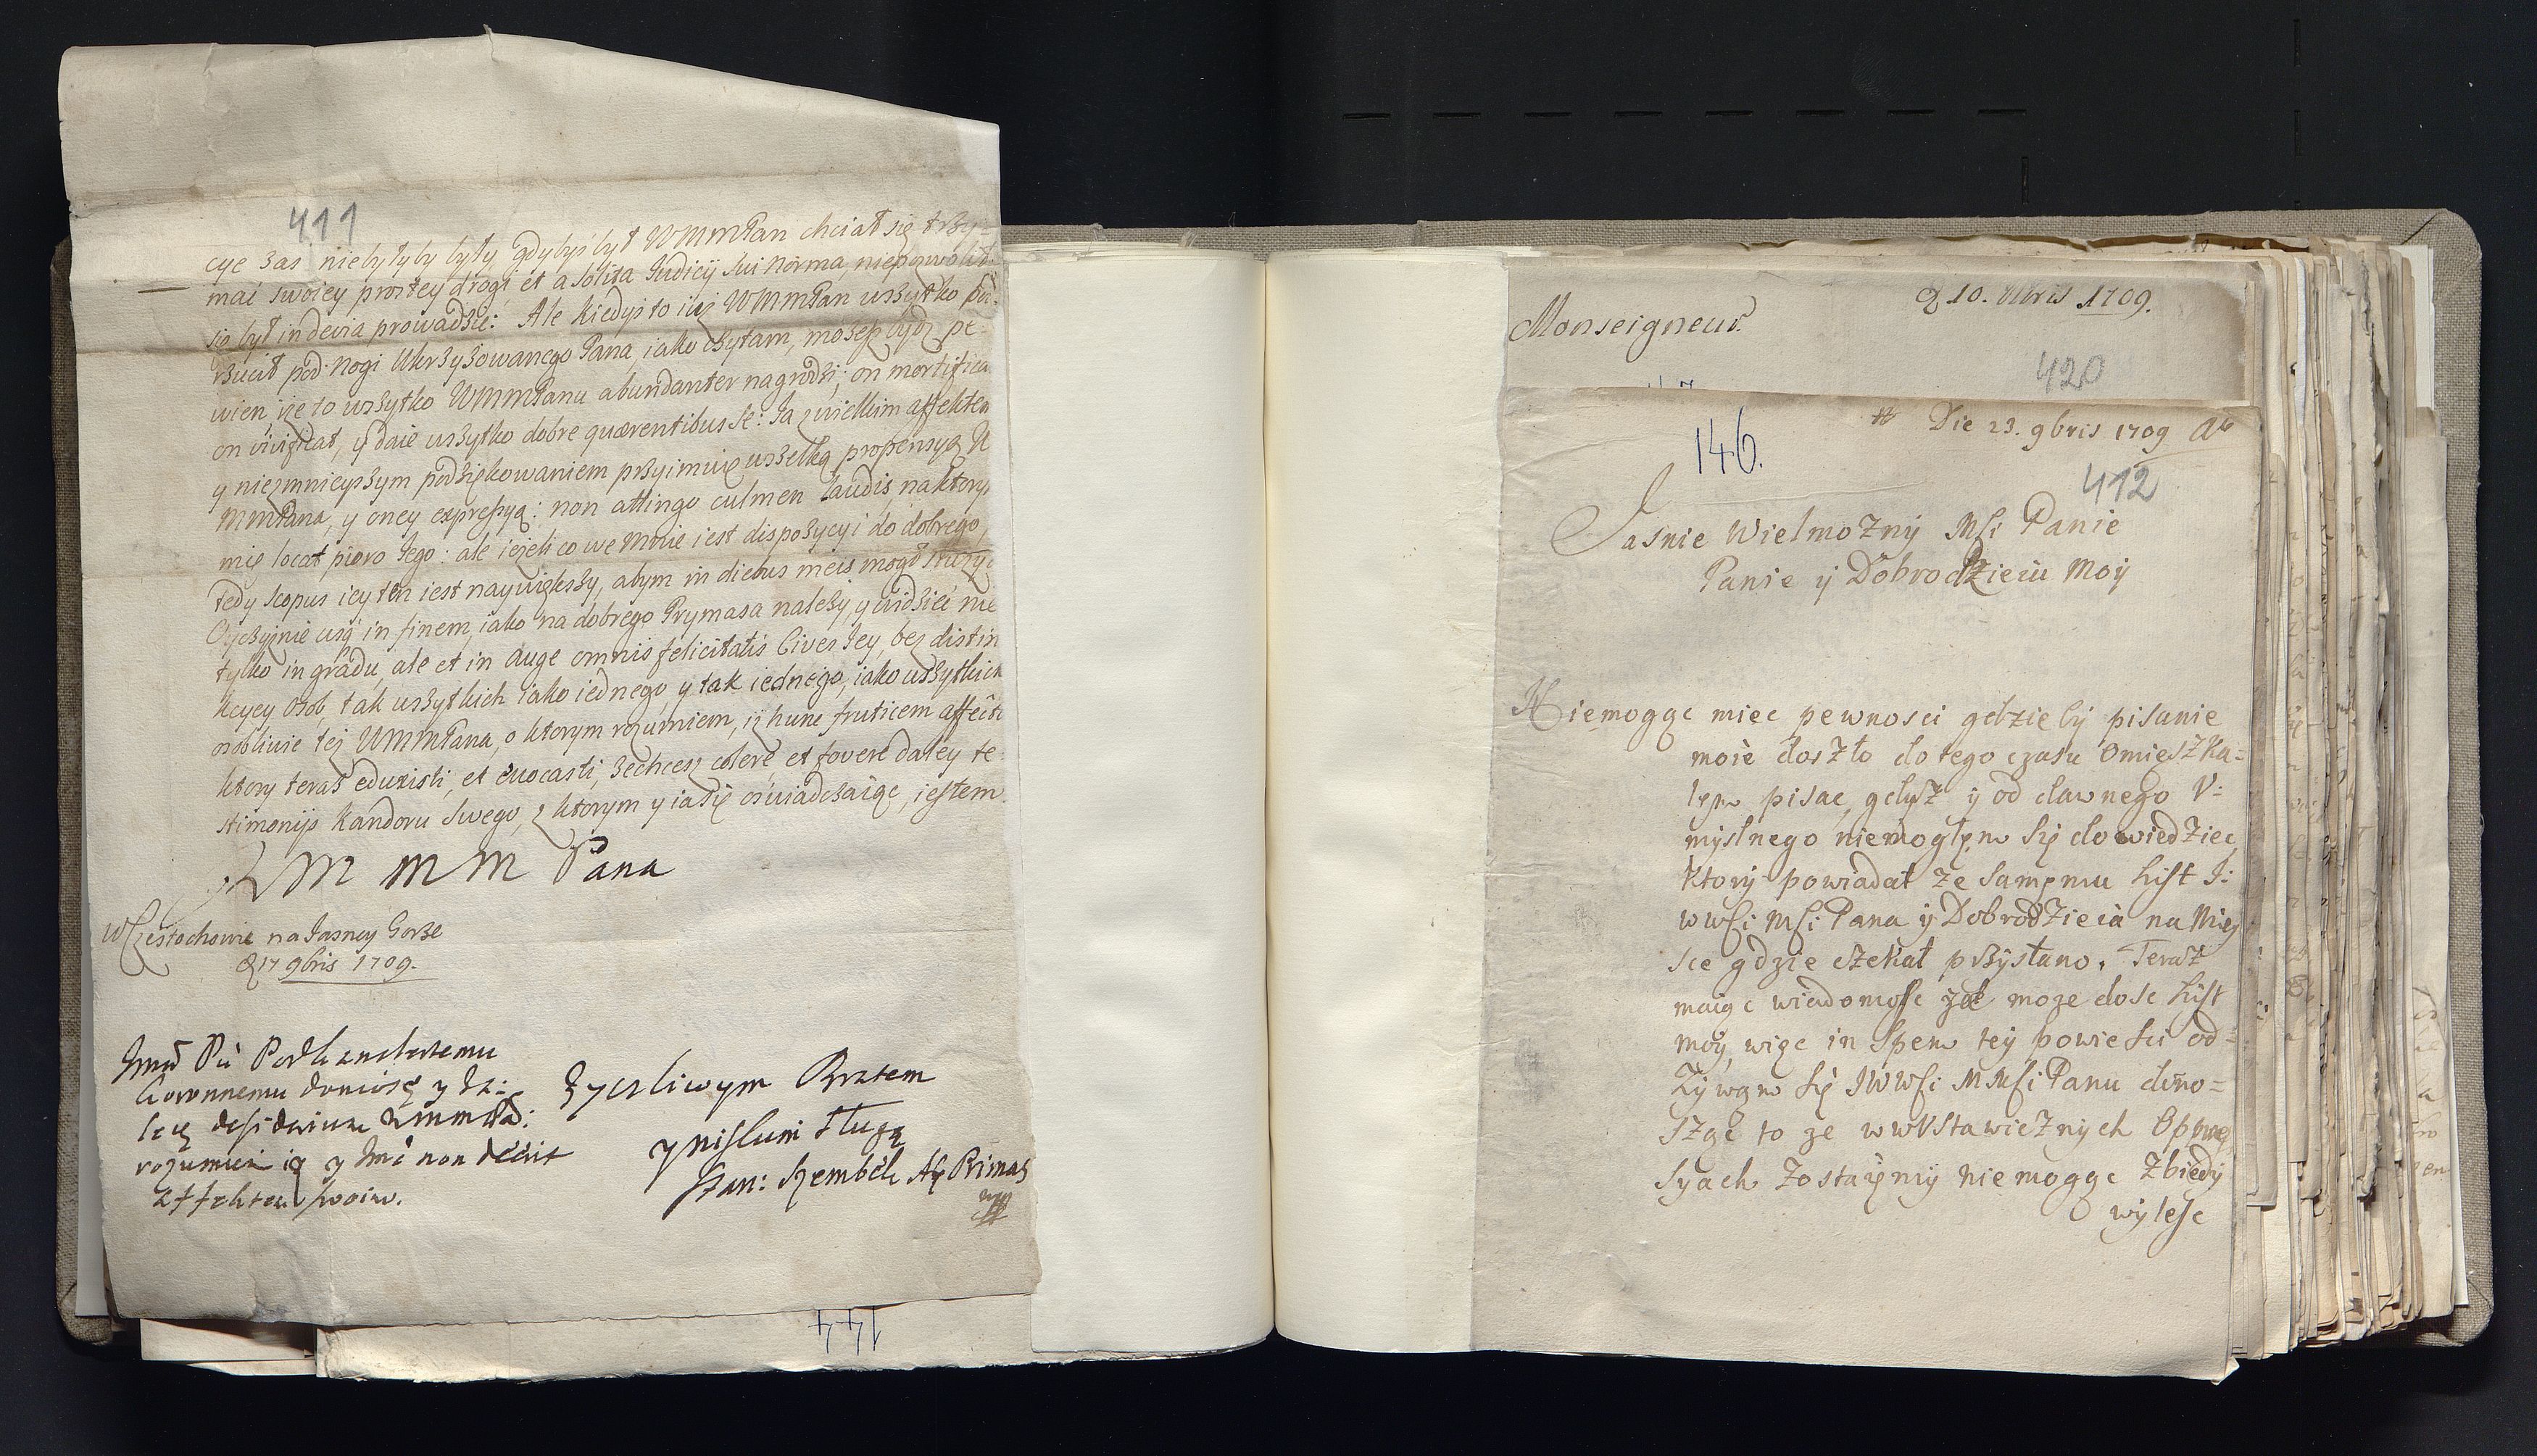 411
cye zas niebyłyby były gdybyś był WMMPan chciał się trzy-
mać swoiey prostey drogi et a solita Judicij sui norma, niepozwolił
się był in devia prowadzić: Ale kiedyś to iuż WMMPan wszytko po-
rzucił pod nogi Ukrzyżowanego Pana, iako czytam, możesz bydz pe-
wien, iże to wszytko WMMPanu abundanter nagrodzi; on mortificat
on vivificat, y daie wszytko dobre quærentibus se: Ja z wielkim affektem
y niezmnieyszym podziękowaniem przyimuię wszelką propensyą W
MMPana, y oney expressyą: non attingo culmen laudis, na ktorym
mię locat pioro Jego: ale ieżeli co we mnie iest dispozycyi do dobrego,
tedy scopus iey ten iest naywiększy, abym in diebus meis mogł służyć
Oyczyznie usq in finem, iako na dobrego Prymasa należy, y widzieć nie
tylko in gradu, ale et in auge omnis felicitatis Cives Jey, bez distin
kcyey osob, tak wszytkich iako iednego, y tak iednego, iako wszytkich
osobliwie też WMMPana, o ktorym rozumiem, iż hunc fruticem affectu
ktory teraz eduxisti, et evocasti, zechcesz colere et fovere daley te-
stimonijs kandoru swego, z ktorym y ia się oświadczaiąc, iestem
WM M M Pana
w Częstochowie na Jasney Gorze
d 17 9bris 1709.
Jmć Pu Podkanclerzemu
koronnemu doniosę y
desiderium WMMPa:
rozumiem iż y Jmć non deerit
affektem swoim.
Życzliwym Bratem
y niskim sługą
Stan: Szembek Ap Primas
mpp
144
Monseigneur.
d 10. Xbris 1709.
420
146.
Die 23. 9bris 1709
412
Jasnie Wielmozny Msi Panie
Panie ÿ Dobrodzieiu Moÿ
Niemogąc miec pewnosci gdzie bÿ pisanie
moie doszło do tego czasu omieszka-
łem pisac, gdysz ÿ od dawnego V:
myslnego niemogłem się dowiedziec
ktorÿ powiadał ze samemu list J:
WWsi Msi Pana ÿ Dobrodzieia na Miey
sce gdzie czekał przysłano. Terasz
maiąc wiadomosc ze moze dosc list
moÿ, więc in spem teÿ powiesci od-
zÿwam się JWWsi MMsi Panu dono-
sząc to ze w wustawicznych Oppres
syach zostaięmÿ niemogąc z biedÿ
wÿlesc